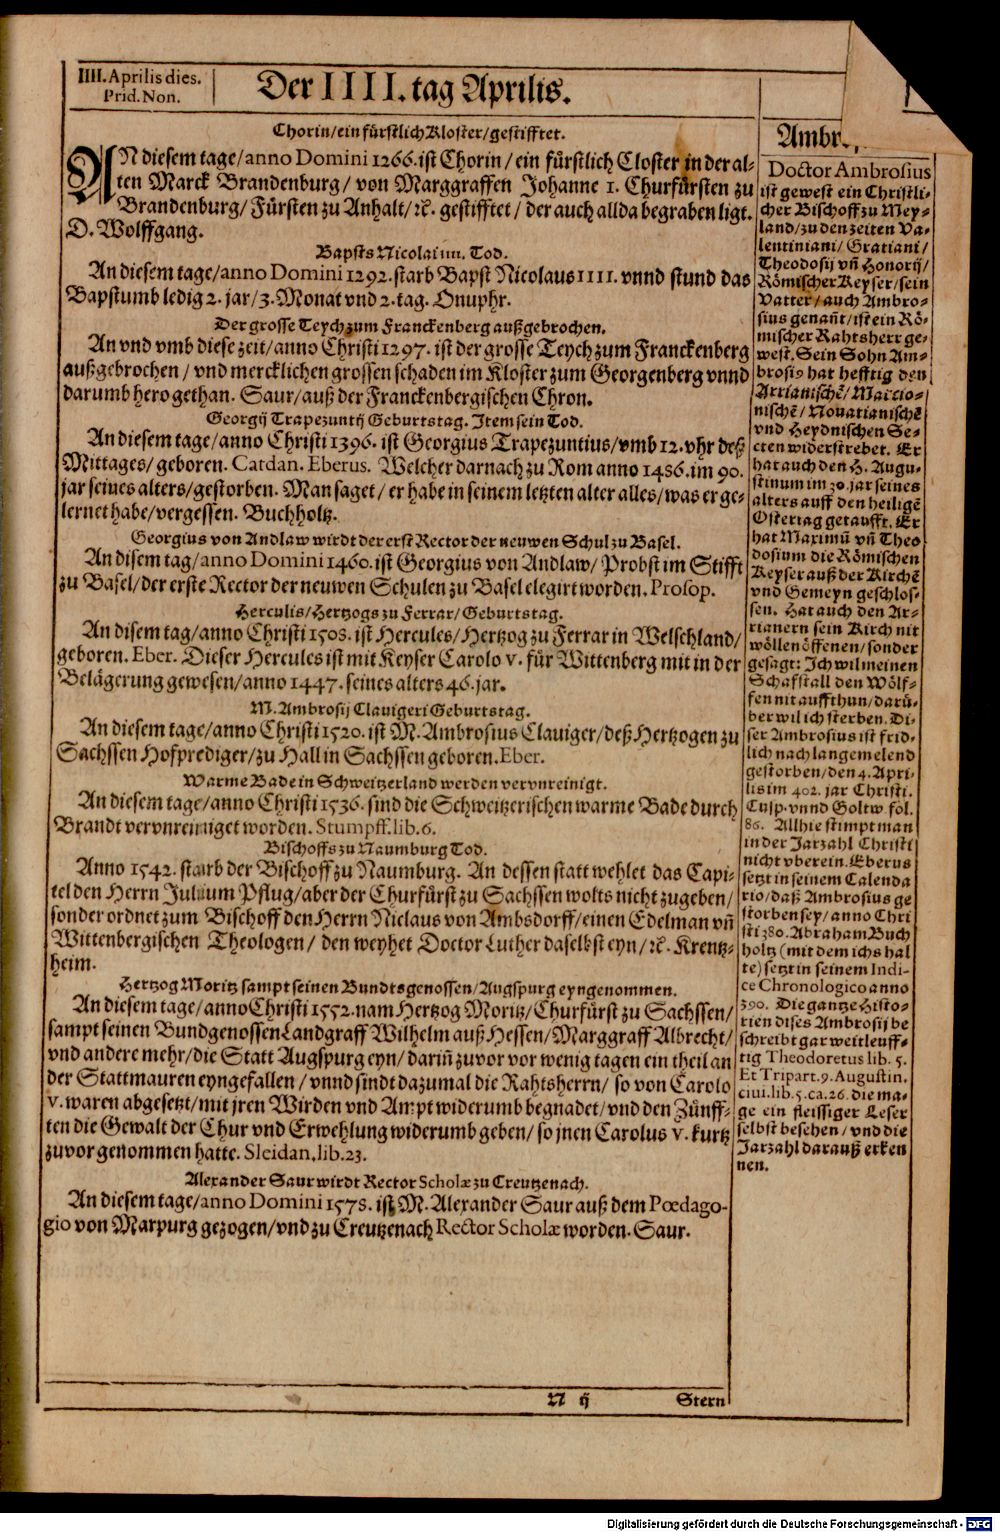 IIII. Aprilis dies.
Prid. Non.
Der IIII. tag Aprilis.
Chorin/ ein fürstlich Kloster/ gestifftet.
AN diesem tage/ anno Domini 1266. ist Chorin/ ein fürstlich Closter in der al-
ten Marck Brandenburg/ von Marggraffen Johanne 1. Churfürsten zu
Brandenburg/ Fürsten zu Anhalt/ ꝛc. gestifftet/ der auch allda begraben ligt.
D. Wolffgang.
Bapsts Nicolai IIII. Tod.
An diesem tage/ anno Domini 1292. starb Bapst Nicolaus IIII. vnnd stund das
Bapstumb ledig 2. jar/ 3. Monat vnd 2. tag. Onuphr.
Der grosse Teych zum Franckenberg außgebrochen.
An vnd vmb diese zeit/ anno Christi 1297. ist der grosse Teych zum Franckenberg
außgebrochen/ vnd mercklichen grossen schaden im Kloster zum Georgenberg vnnd
darumb hero gethan. Saur/ auß der Franckenbergischen Chron.
Georgij Trapezuntij Geburtstag. Item sein Tod.
An diesem tage/ anno Christi 1396. ist Georgius Trapezuntius/ vmb 12. vhr deß
Mittages/ geboren. Cardan. Eberus. Welcher darnach zu Rom anno 1486. im 90.
jar seines alters/ gestorben. Man saget/ er habe in seinem letzten alter alles/ was er ge-
lernet habe/ vergessen. Buchholtz.
Georgius von Andlaw wirdt der erst Rector der neuwen Schul zu Basel.
An disem tag/ anno Domini 1460. ist Georgius von Andlaw/ Probst im Stifft
zu Basel/ der erste Rector der neuwen Schulen zu Basel elegirt worden. Prosop.
Herculis/ Hertzogs zu Ferrar/ Geburtstag.
An disem tag/ anno Christi 1508. ist Hercules/ Hertzog zu Ferrar in Welschland/
geboren. Eber. Dieser Hercules ist mit Keyser Carolo V. für Wittenberg mit in der
Belägerung gewesen/ anno 1447. seines alters 46. jar.
M. Ambrosij Clauigeri Geburtstag.
An diesem tage/ anno Christi 1520. ist M. Ambrosius Clauiger/ deß Hertzogen zu
Sachssen Hofprediger/ zu Hall in Sachssen geboren. Eber.
Warme Bade in Schweitzerland werden vervnreinigt.
An diesem tage/ anno Christi 1536. sind die Schweitzerischen warme Bade durch
Brandt vervnreiniget worden. Stumpff. lib. 6.
Bischoffs zu Naumburg Tod.
Anno 1542. starb der Bischoff zu Naumburg. An dessen statt wehlet das Capi-
tel den Herrn Julium Pflug/ aber der Churfürst zu Sachssen wolts nicht zugeben/
sonder ordnet zum Bischoff den Herrn Niclaus von Ambsdorff/ einen Edelman vñ
Wittenbergischen Theologen/ den weyhet Doctor Luther daselbst eyn/ ꝛc. Krentz-
heim.
Hertzog Moritz sampt seinen Bundtsgenossen/ Augspurg eyngenommen.
An diesem tage/ anno Christi 1552. nam Hertzog Moritz/ Churfürst zu Sachssen/
sampt seinen Bundgenossen Landgraff Wilhelm auß Hessen/ Marggraff Albrecht/
vnd andere mehr/ die Statt Augspurg eyn/ dariñ zuvor vor wenig tagen ein theil an
der Stattmauren eyngefallen/ vnnd sindt dazumal die Rahtsherrn/ so von Carolo
V. waren abgesetzt/ mit jren Wirden vnd Ampt widerumb begnadet/ vnd den Zünff-
ten die Gewalt der Chur vnd Erwehlung widerumb geben/ so jnen Carolus V. kurtz
zuvor genommen hatte. Sleidan. lib. 23.
Alexander Saur wirdt Rector Scholæ zu Creutzenach.
An diesem tage/ anno Domini 1578. ist M. Alexander Saur auß dem Pœdago-
gio von Marpurg gezogen/ vnd zu Creutzenach Rector Scholæ worden. Saur.
Doctor Ambrosius
ist gewest ein Christli-
cher Bischoff zu Mey-
land/ zu den zeiten Va-
lentiniani/ Gratiani/
Theodosij vñ Honorij/
Römischer Keyser/ sein
Vatter/ auch Ambro-
sius genañt/ ist ein Rö-
mischer Rahtsherr ge-
west. Sein Sohn Am-
brosi⁹ hat hefftig den
Arrianischẽ/ Marcio-
nischẽ/ Nouatianischẽ
vnd Heydnischen Se-
cten widerstrebet. Er
hat auch den H. Augu-
stinum im 30. jar seines
alters auff den heiligẽ
Ostertag getaufft. Er
hat Maximũ vñ Theo
dosium die Römischen
Keyser auß der Kirchẽ
vnd Gemeyn geschlos-
sen. Hat auch den Ar-
rianern sein Kirch nit
wöllen öffenen/ sonder
gesagt: Ich wil meinen
Schafstall den Wölf-
fen nit auffthun/ darü-
ber wil ich sterben. Di-
ser Ambrosius ist frid-
lich nach langem elend
gestorben/ den 4. Apri-
lis im 402. jar Christi.
Cusp. vnnd Goltw. fol.
86. Allhie stimpt man
in der Jarzahl Christi
nicht vberein. Eberus
setzt in seinem Calenda
rio/ daß Ambrosius ge
storben sey/ anno Chri
sti 380. Abraham Buch
holtz (mit dem ichs hal
te) setzt in seinem Indi-
ce Chronologico anno
390. Die gantze Histo-
rien dises Ambrosij be
schreibt gar weitleuff-
tig Theodoretus lib. 5.
Et Tripart. 9. Augustin.
ciui. lib. 5. ca. 26. die ma-
ge ein fleissiger Leser
selbst besehen/ vnd die
Jarzahl darauß erken
nen.
N ij
Stern
Digitalisierung gefördert durch die Deutsche Forschungsgemeinschaft - DFG